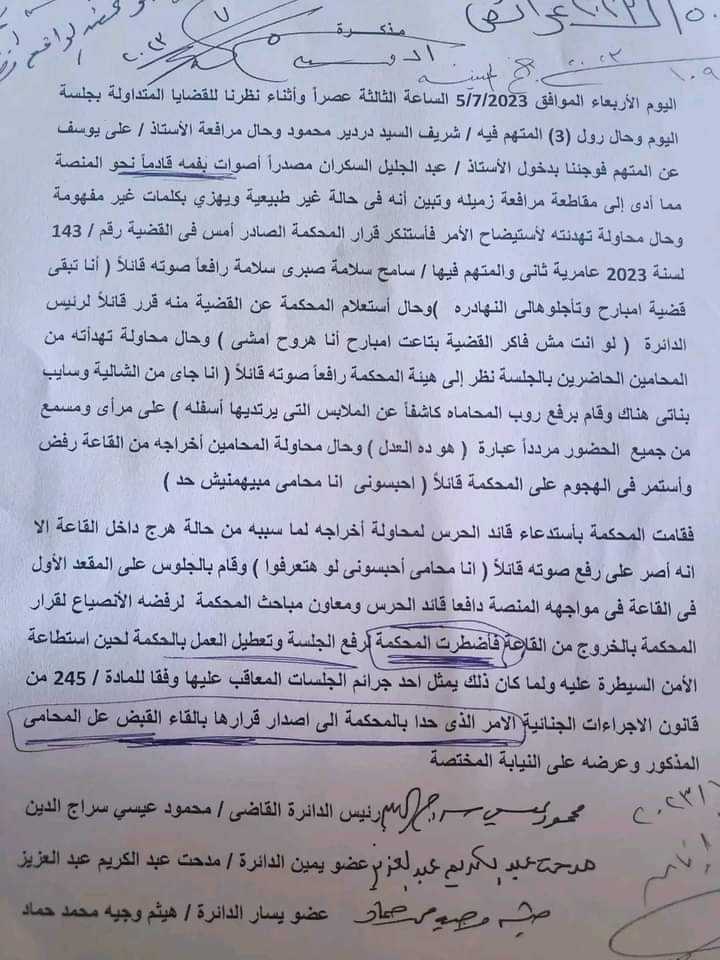 مذكرة
٢٠٢٣
اليوم الأربعاء الموافق 5/7/2023 الساعة الثالثة عصراً وأثناء نظرنا للقضايا المتداولة بجلسة
اليوم وحال رول (3) المتهم فيه / شريف السيد دردير محمود وحال مرافعة الأستاذ / على يوسف
عن المتهم فوجئنا بدخول الأستاذ / عبد الجليل السكران مصدراً أصوات بفمه قادماً نحو المنصة
مما أدى إلى مقاطعة مرافعة زميله وتبين أنه فى حالة غير طبيعية ويهزي بكلمات غير مفهومة
وحال محاولة تهدئته لأستيضاح الأمر فأستنكر قرار المحكمة الصادر أمس فى القضية رقم / 143
لسنة 2023 عامرية ثانى والمتهم فيها / سامح سلامة صبرى سلامة رافعاً صوته قائلاً ( أنا تبقى
قضية امبارح وتأجلوهالى النهادره )وحال أستعلام المحكمة عن القضية منه قرر قائلاً لرئيس
الدائرة ( لو انت مش فاكر القضية بتاعت امبارح أنا هروح امشى ) وحال محاولة تهدأته من
المحامين الحاضرين بالجلسة نظر إلى هيئة المحكمة رافعاً صوته قائلاً ( انا جاى من الشالية وسايب
بناتى هناك وقام برفع روب المحاماه كاشفاً عن الملابس التى يرتديها أسفله ) على مرأى ومسمع
من جميع الحضور مردداً عبارة ( هو ده العدل ) وحال محاولة المحامين أخراجه من القاعة رفض
وأستمر فى الهجوم على المحكمة قائلاً ( احبسونى انا محامى مبيهمنيش حد )
فقامت المحكمة بأستدعاء قائد الحرس لمحاولة أخراجه لما سببه من حالة هرج داخل القاعة الا
انه أصر على رفع صوته قائلاً ( انا محامى أحبسونى لو هتعرفوا ) وقام بالجلوس على المقعد الأول
فى القاعة فى مواجهه المنصة دافعا قائد الحرس ومعاون مباحث المحكمة لرفضه الأنصياع لقرار
المحكمة بالخروج من القاعة فأضطرت المحكمة لرفع الجلسة وتعطيل العمل بالحكمة لحين استطاعة
الأمن السيطرة عليه ولما كان ذلك يمثل احد جرائم الجلسات المعاقب عليها وفقا للمادة / 245 من
قانون الاجراءات الجنائية الامر الذى حدا بالمحكمة الى اصدار قرارها بالقاء القبض عل المحامى
المذكور وعرضه على النيابة المختصة
رئيس الدائرة القاضى / محمود عيسي سراج الدين
عضو يمين الدائرة / مدحت عبد الكريم عبد العزيز مدحت عبد الكريم عبد العزيز
عضو يسار الدائرة / هيثم وجيه محمد حماد